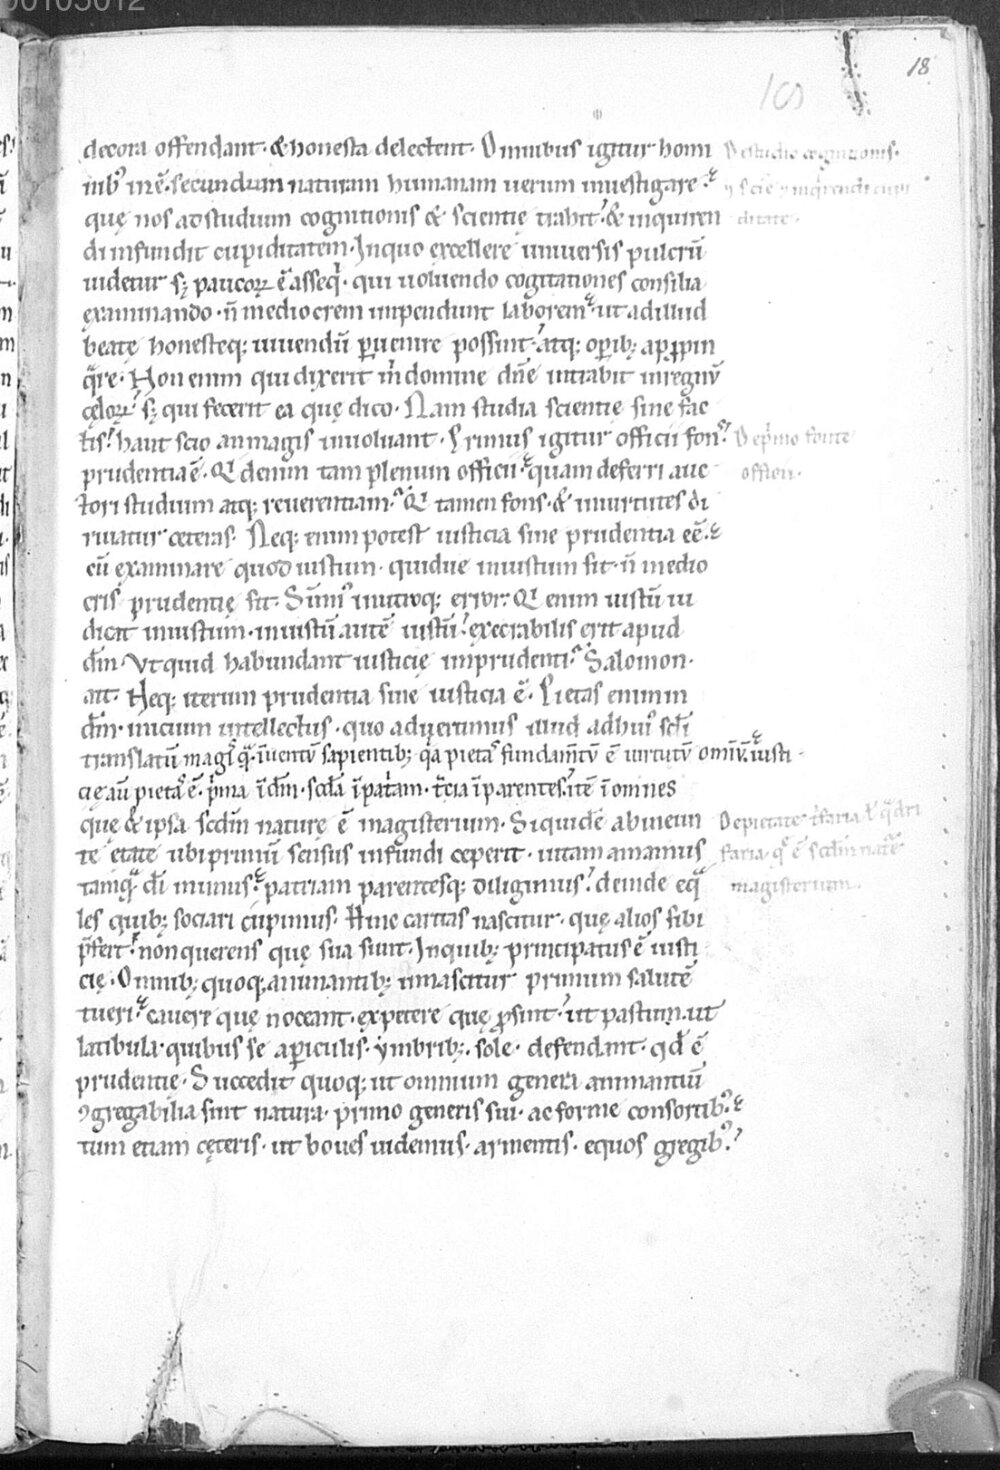 18
decora offendant· & honesta delectent· Omnibus igitur homi
nib; inē· secundum naturam humanam uerum inuestigare·
quę nos ad studium cognitionis & scientię trahit· & inquiren
di infundit cupiditatem· In quo excellere uniuersis pulcrū
uidetur s; paucoꝝ ē asseq̇· qui uoluendo cogitationes consilia
examinando· n̄ mediocrem impendunt laborem· ut ad illud
beatę honesteq; uiuendū ꝑuenire possint· atq; oꝑib; apꝓpin
q̄re· Non enim qui dixerit m̍ domine dn̄e intrabit in regnū
cęloꝝ· s; qui fecerit ea quę dico· Nam studia scientie sine fac
tis· haut scio an magis inuoluant· Primus igitur officii fons
prudentia ē· Qd enim tam plenum officii· quam deferri auc
tori studium atq; reuerentiam· Qd tamen fons· & in uirtutes di
riuatur ceteras· Neq; enim potest iusticia sine prudentia eē·
cū examinare quod iustum· quidue iniustum sit· n̄ medio
cris prudentię sit· Sūm᷒ in utroq; error· Qd enim iustū iu
dicat iniustum· iniustū autē iustū· execrabilis erit apud
dm̄· Vt quid habundant iusticię imprudenti· Salomon·
ait· Neq; iterum prudentia sine iusticia ē· Pietas enim in
dm̄· initium intellectus· quo aduertimus illud ad hui᷒ scl̄i
translatū magis q̄· inuentū sapientib; q̄a pietas fundam̄tū ē uirtutū omniū· iusti
cię aū pietas ē· p̍ma ī dm̄· scd̄a ī pat̍am· t̍cia ī parentes· itē ī omnes
que & ipsa scdm̄ naturę ē magisterium· Siquidē ab ineun
te etate ubi primū sensus infundi ceperit· uitam amamus
tamq̄ dī munus· patriam parentesq; diligimus· deinde eq̄
les quib; sociari cupimus· Hinc caritas nascitur· quę alios sibi
p̄fert· non querens quę sua sunt· In quib; principatus ē iusti
cię· Omnib; quoq; animantib; innascitur primum salutē
tueri· cauere quę noceant· expetere quę ꝓsint· ut pastum· ut
latibula· quibus se a ꝑiculis· ymbrib;· sole· defendant· qd̄ ē
prudentie· Succedit quoq; ut omnium genera animantiū
ꝯgregabilia sint natura· primo generis sui· ac forme consortib;·
tum etiam cęteris· ut boues uidemus· armentis· equos gregib;·
De studio cognitionis·
ditate·
De p̍mo fonte
officii·
De pietate
magisterium·